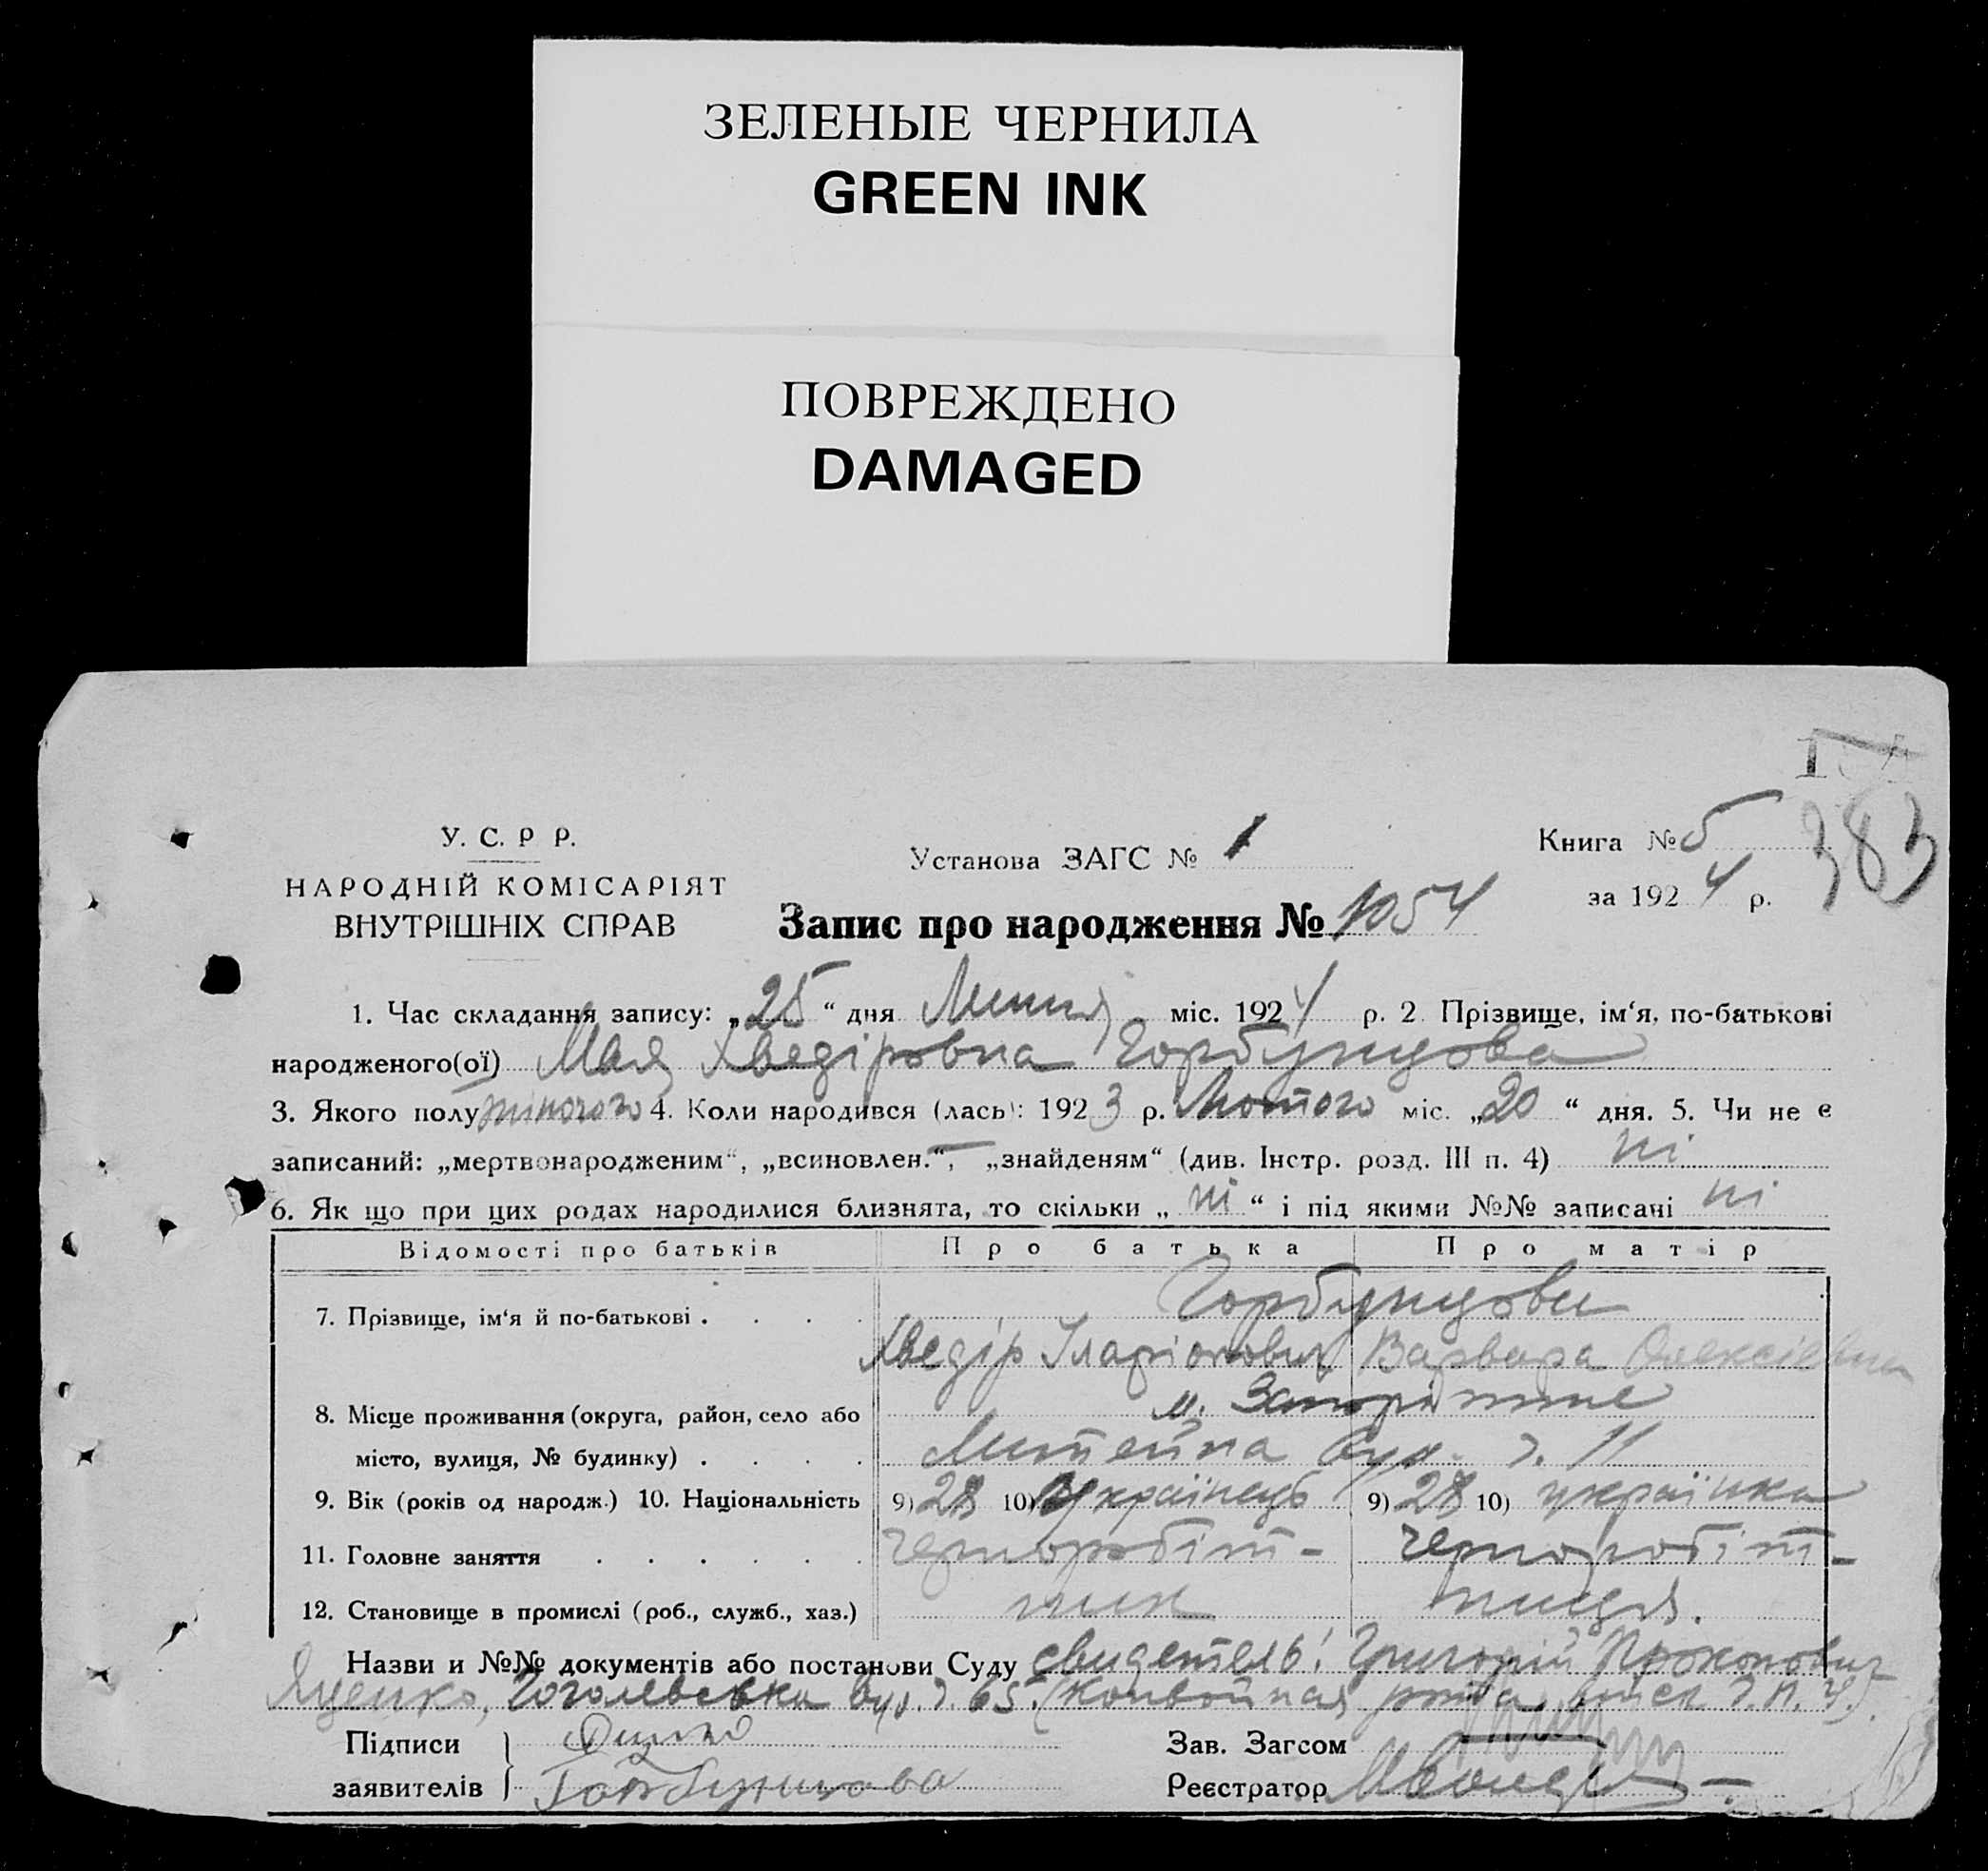 ЗЕЛЕНЫЕ ЧЕРНИЛА
GREEN INK
ПОВРЕЖДЕНО
DAMAGED
У. С. Р Р.
НАРОДНІЙ КОМІСАРІЯТ
ВНУТРІШНІХ СПРАВ
Установа ЗАГС № 1
Книга № 5
383
за 1924 р.
Запис про народження № 1054
1. Час складання запису: „25“ дня Липня міс. 1924 р. 2 Прізвище, ім‘я, по-батькові
народженого(ої) Мая Хведіровна Горбунцова
3. Якого полу жіночого 4. Коли народився (лась): 1923 р. Лютого міс. „20“ дня. 5. Чи не є
записаний: „мертвонародженим“, „всиновлен.“, „знайденям“ (див. Інстр. розд. III п. 4) ні
6. Як що при цих родах народилися близнята, то скільки „ні“ і під якими №№ записані ні
Відомості про батьків Про батька Про матір
Горбунцови
7. Прізвище, ім‘я й по-батькові . . . .
Хведір Іларіонович Варвара Олексіевна
8. Місце проживання (округа, район, село або м. Запоріжжє
місто, вулиця, № будинку) . . . . Литейна вул. д. 11
9. Вік (років од народж.) 10. Національність 9) 28 10) Українець 9) 28 10) українка
11. Головне заняття . . . . . . чернoробіт- чернoробіт-
12. Становище в промислі (роб., служб., хаз.) ник ниця.
Назви и №№ документів або постанови Суду свидетель: Григорій Прокопович
Яценко, Гоголевська вул. д. 65. (конвойная
Підписи
заявителів Горбунцова
Зав. Загсом
Реєстратор